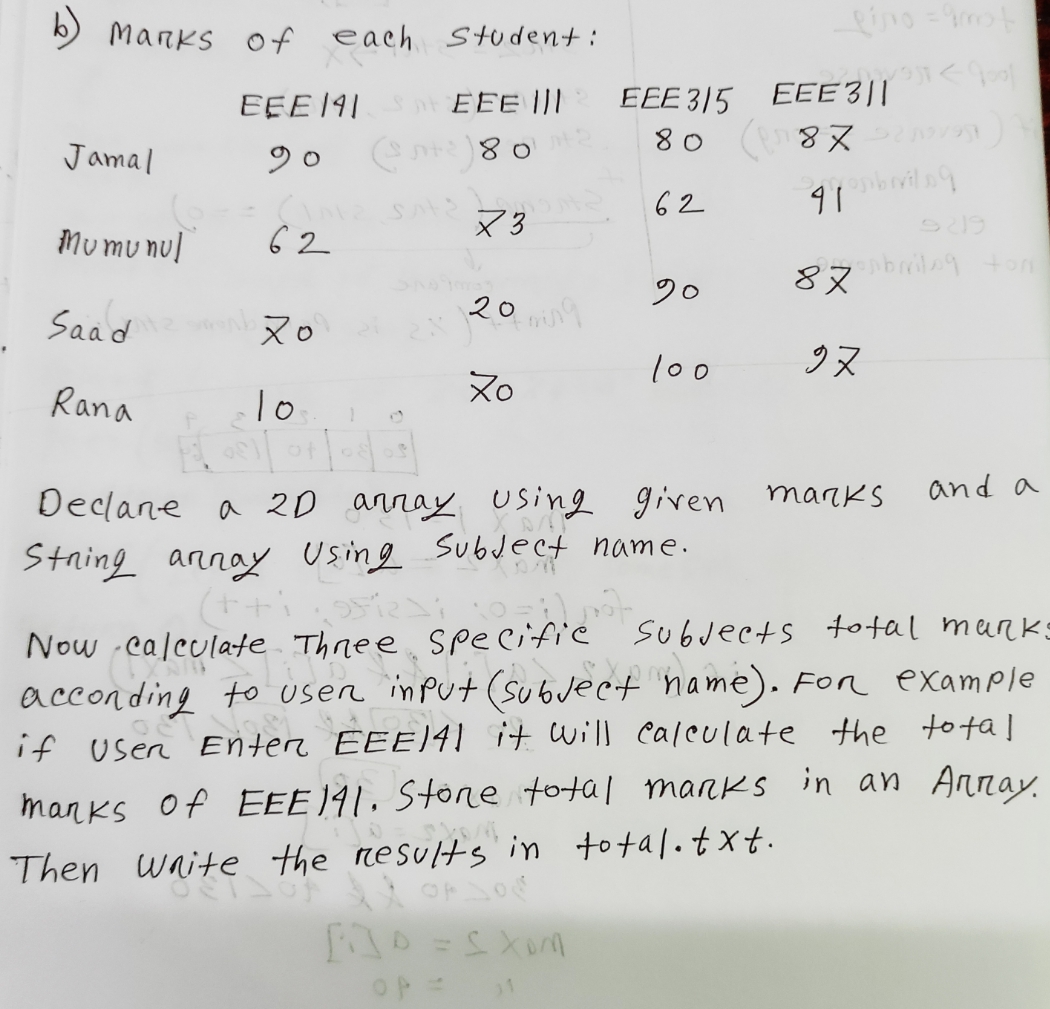 b) Marks of each student:
EEE141 EEE111 EEE315 EEE311
Jamal 90 80 80 87
Mumunul 62 73 62 41
Saad 70 20 90 87
Rana 10 70 100 97
Declare a 2D array using given marks and a
String array using Subject name.
Now calculate Three specific subjects total marks
according to user input (subject name). For example
if user Enter EEE141 it will calculate the total
marks of EEE141. Store total marks in an Array.
Then write the results in total.txt.